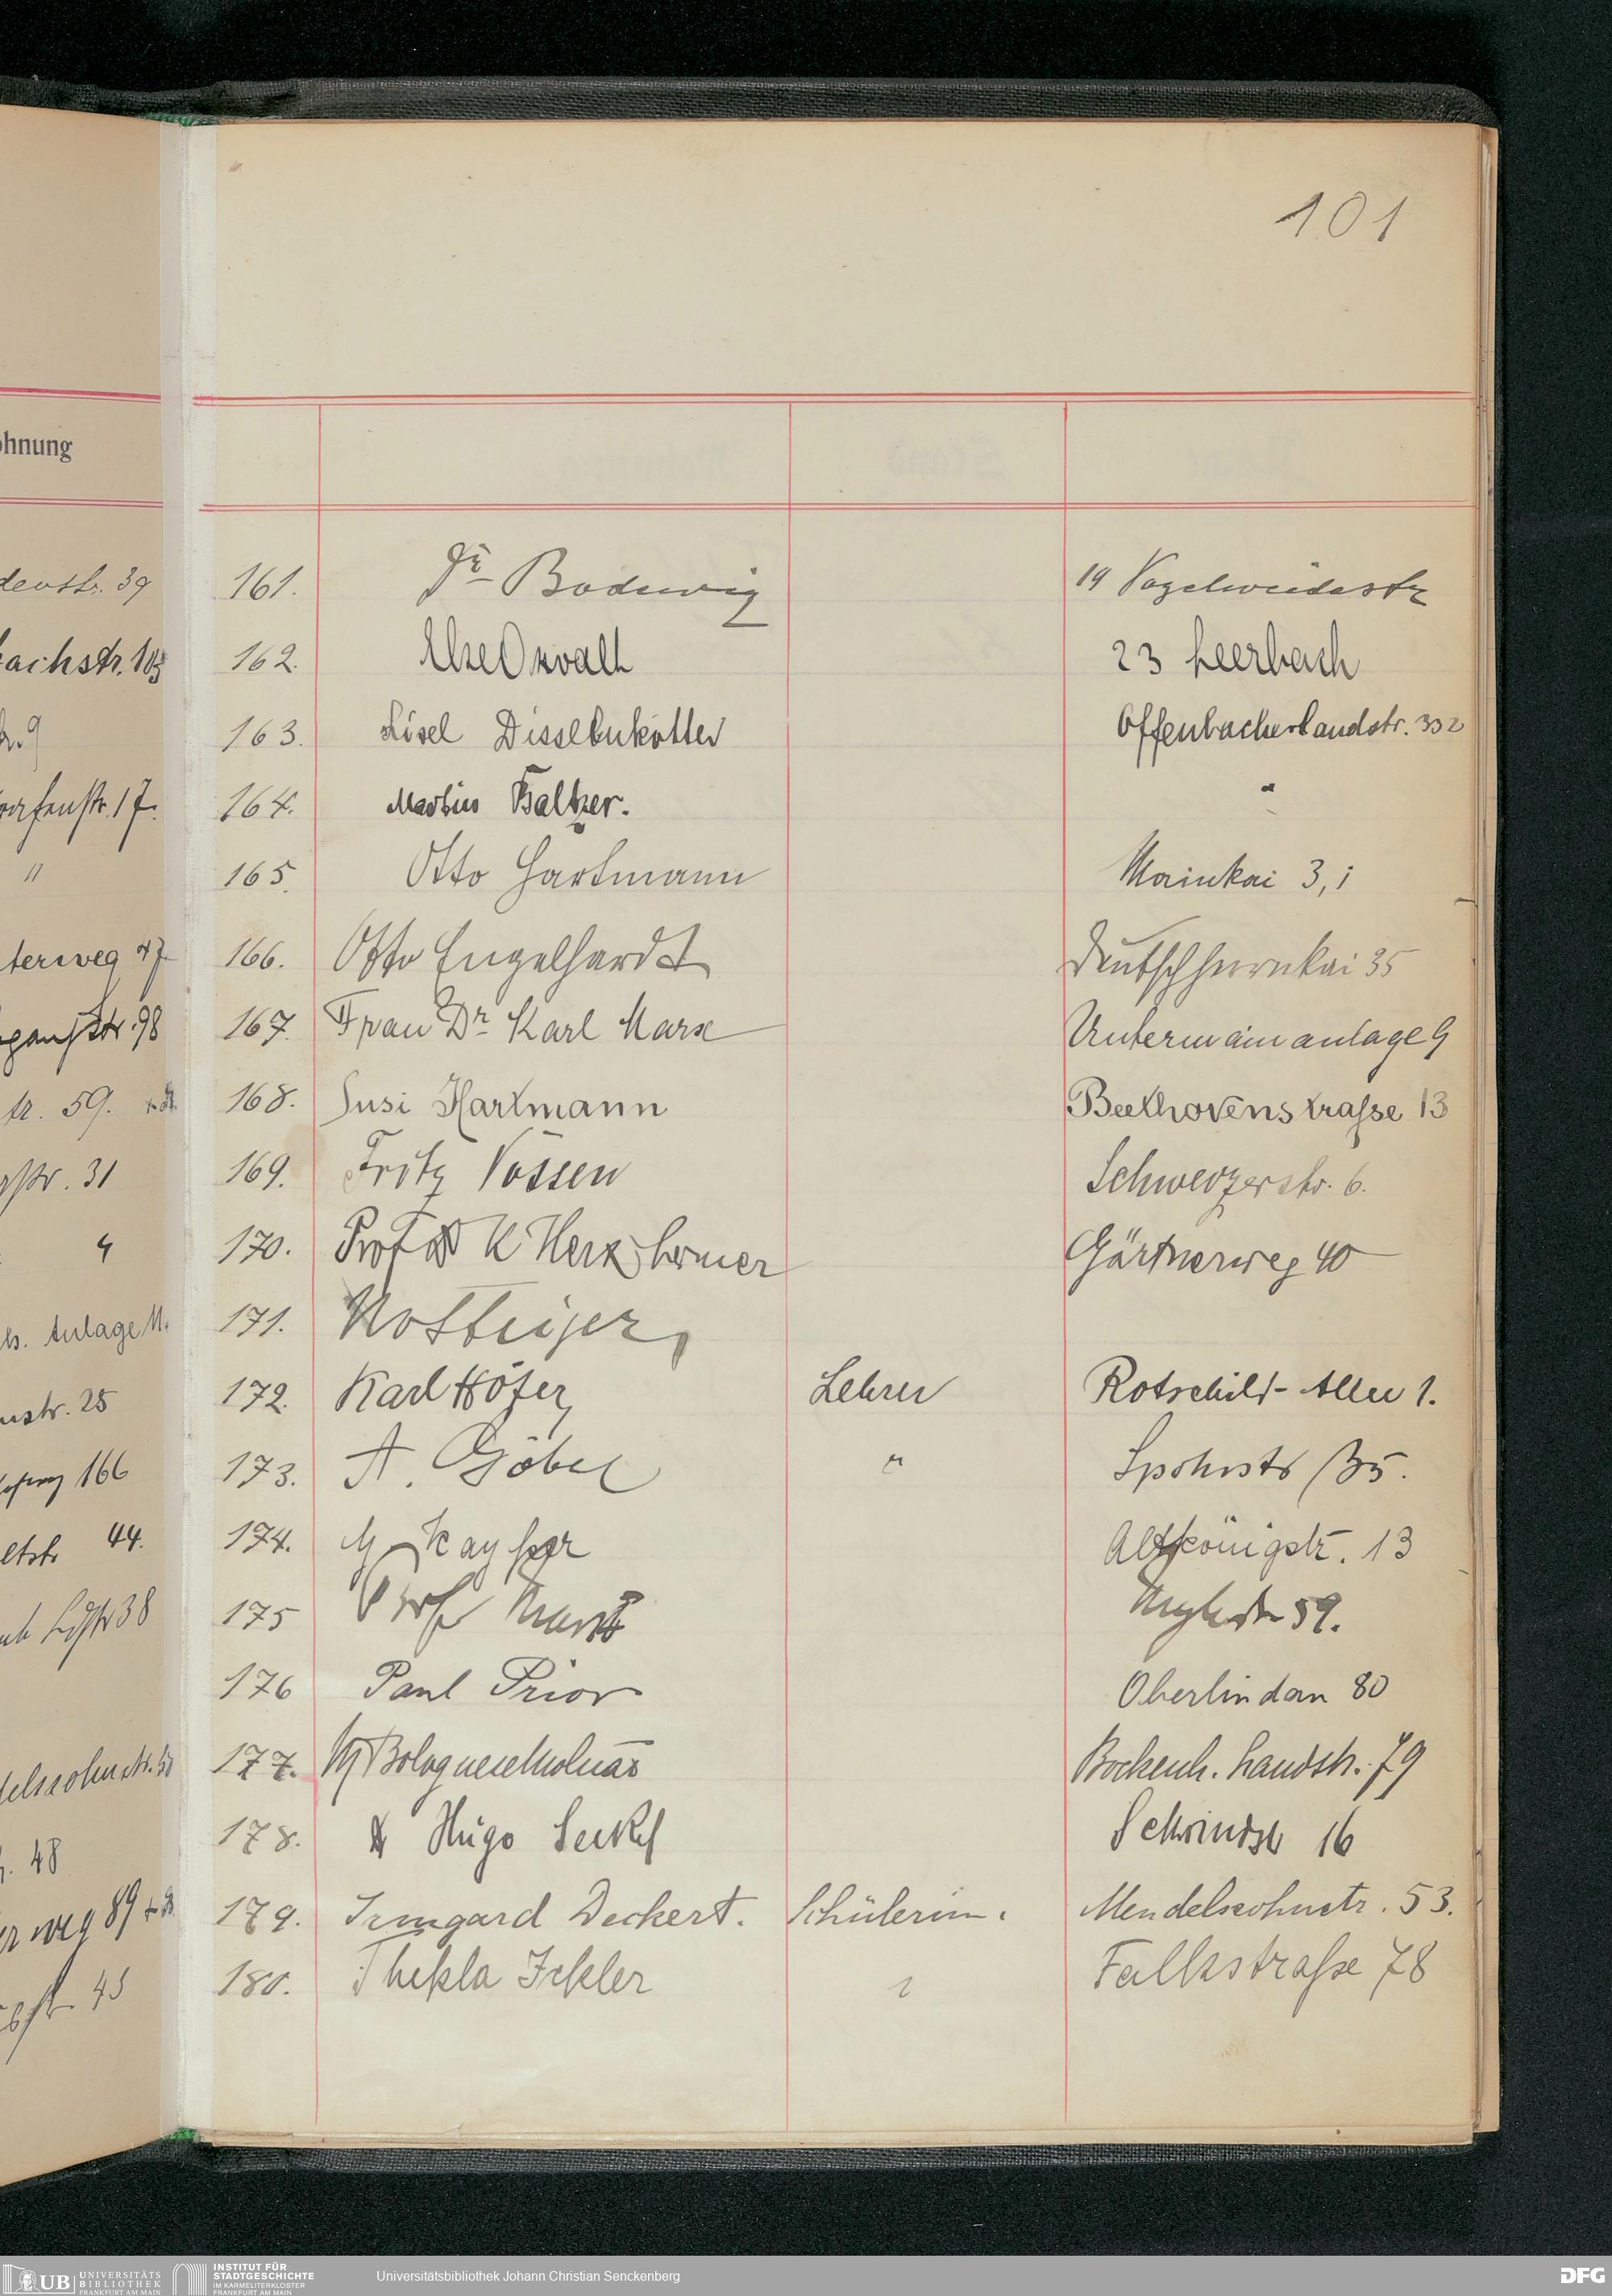 101
ohnung
161. Dr. Bodewig 19 Vogelweidestr
162. Else Oswalt 23 Leerbach
163. Lisel Disselnkötter Offenbacherlandstr. 332
164. Balzer. "
165. Otto Hartmann Mainkai 3, i
166. Otto Engelhardt Deutschherrnkai 35
167. Frau Dr Karl Marx Untermainanlage 9
168. Susi Hartmann Beethovenstrasse 13
169. Fritz Vossen Schweizerstr. 6.
170. Prof Dr K Herxheimer Gärtnerweg 40
171.
172. Karl Höfer, Lehrer Rotschild-Allee 1.
173. A. Göbel " Spohrstr 35.
174. Kayser Altkönigstr. 13
175 Prof 59.
176 Paul Prior Oberlindau 80
177. Bolognese Molnar Bockenh. Landstr. 79
178. Hugo Schwindstr 16
179. Irmgard Deckert. Schülerin. Mendelssohnstr. 53.
180. Thekla Falkstrasse 78
denstr. 39
achstr. 103
9
17.
"
terweg 47
98
tr. 59.
str. 31
4
Anlage
nstr. 25
166
44.
38
elssohnstr.
48
weg 89
45
UB UNIVERSITÄTS
BIBLIOTHEK
FRANKFURT AM MAIN
INSTITUT FÜR
STADTGESCHICHTE
IM KARMELITERKLOSTER
FRANKFURT AM MAIN
Universitätsbibliothek Johann Christian Senckenberg
DFG